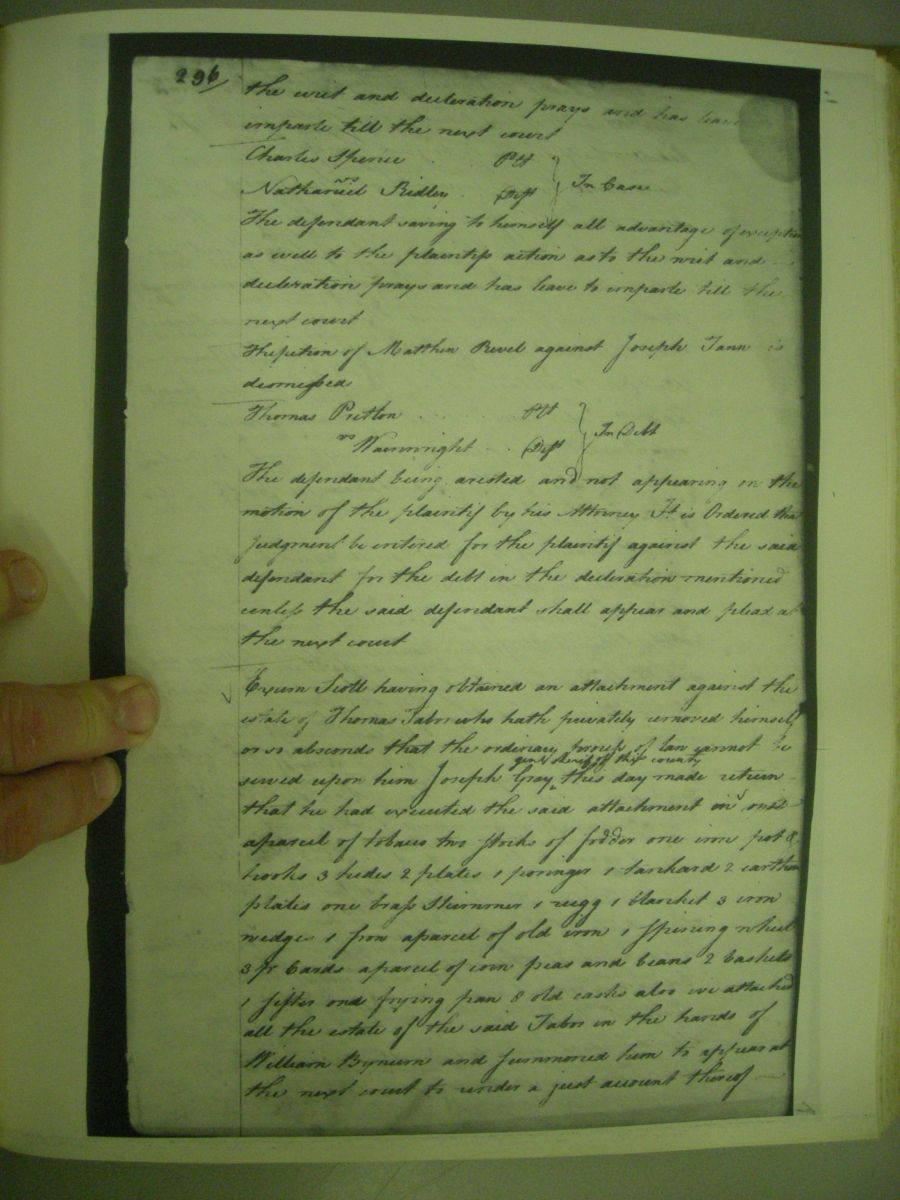 296
the writ and decleration prays and has leave
imparle till the next court
Charles Spence Plt
vs
Nathaniel Ridley Deft In Case
The defendant saving to himself all advantage of exception
as well to the plaintifs action as to the writ and
decleration prays and has leave to imparle till the
next court
The petition of Matthew Revel against Joseph Tann is
dismissed
Thomas Pretlon Plt
vs In Debt
Wainwright Deft
The defendant being arested and not appearing on the
motion of the plaintif by his Attorney It is Ordered that
judgment be entered for the plaintif against the said
defendant for the debt in the decleration mentioned
unless the said defendant shall appear and plead at
the next court
Exum Scott having obtained an attachment against the
estate of Thomas Tabor who hath privately removed himself
or so absconds that the ordinary process of law cannot be
gent sherif of this county
served upon him Joseph Gray ^ this day made return
that he had executed the said attachment in
a parcel of tobacco two stacks of fodder one iron pot &
hooks 3 hides 2 plates 1 poringer 1 tankard 2 earthen
plates one brass skimmer 1 rugg 1 blanket 3 iron
wedges 1 a parcel of old iron 1 spining wheel
3 pr Cards a parcel of corn peas and beans 2 baskets
1 sifter one frying pan 8 old casks also we attached
all the estate of the said Tabor in the hands of
William Bynum and summoned him to appear at
the next court to render a just account thereof